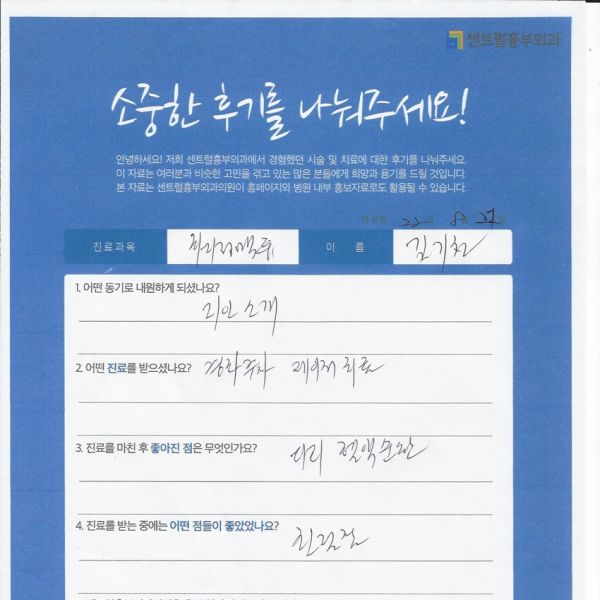 센트럴흉부외과
소중한 후기를 나눠주세요!
안녕하세요! 저희 센트럴흉부외과에서 경험했던 시술 및 치료에 대한 후기를 나눠주세요.
이 자료는 여러분과 비슷한 고민을 겪고 있는 많은 분들에게 희망과 용기를 드릴 것입니다.
본 자료는 센트럴흉부외과의원이 홈페이지와 병원 내부 홍보자료로도 활용될 수 있습니다.
작성일 22년 8월 27일
진료과목 하지정맥류 이 름 김기천
1. 어떤 동기로 내원하게 되셨나요?
지인 소개
2. 어떤 진료를 받으셨나요? 경화주사 레이저 치료
3. 진료를 마친 후 좋아진 점은 무엇인가요? 다리 혈액순환
4. 진료를 받는 중에는 어떤 점들이 좋았었나요?
친절함